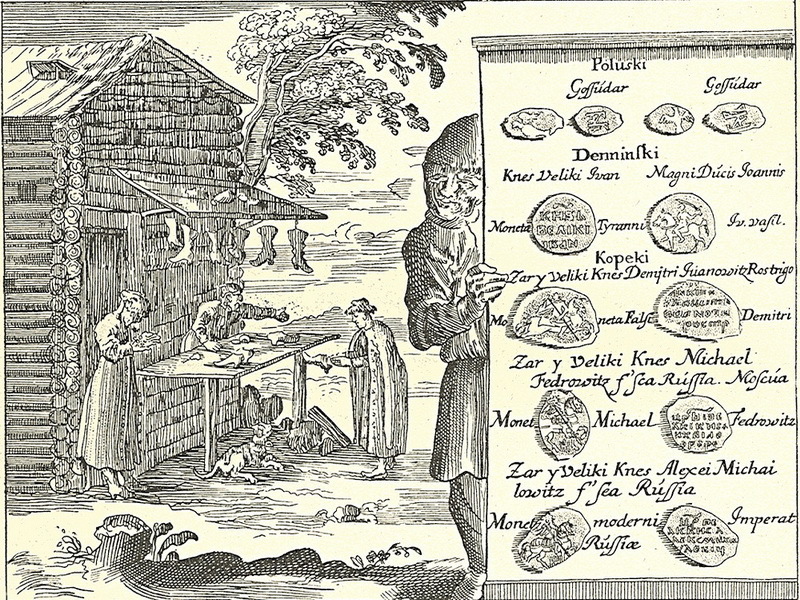 Poluski
Gossúdar Gossúdar
Denninski
Knes Veliki Ivan Magni Dúcis Joannis
Moneta Tyranni Iv. vasil.
КНЯЗЬ
ВЕЛIКI
IВАN
Kopeki
Zar y Veliki Knes Demitri Juanowitz Rostrigo
Mo neta False Demitri
Zar y Veliki Knes Michael
Fedrowitz f'sea Rússla. Moscúa
Monet Michael Fedrowitz
Zar y Veliki Knes Alexei Michai
lowitz f'sea Rússia
Monet moderni Imperat
Rússiæ